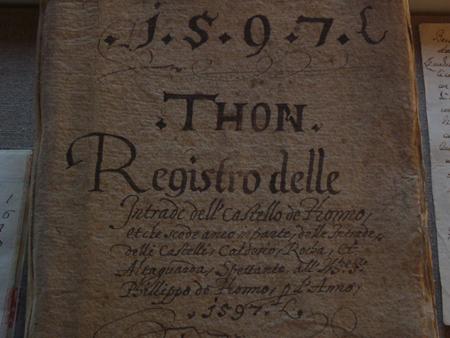 .1.5.9.7.
.THON.
Registro delle
Intrade dell Castello de Thonno,
et che scode anco in parte, delle Intrade,
delli Castelli, Caldesio, Rocha, Et
Altaguarda, Spettante, all
Phillippo de Thonno, p l'Anno,
.1597.